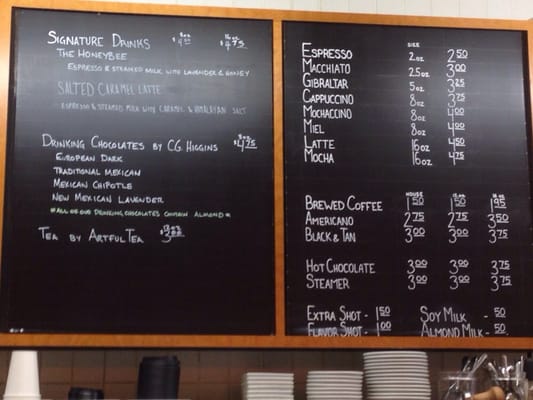 SIGNATURE DRINKS 8oz 16oz $4.75
THE HONEYBEE
ESPRESSO & STEAMED MILK WITH LAVENDER & HONEY
SALTED CARAMEL LATTE
ESPRESSO & STEAMED MILK WITH CARAMEL & HIMALAYAN SALT
DRINKING CHOCOLATES BY CG HIGGINS 8oz $4.75
EUROPEAN DARK
TRADITIONAL MEXICAN
MEXICAN CHIPOTLE
NEW MEXICAN LAVENDER
*ALL OF OUR DRINKING CHOCOLATES CONTAIN ALMOND*
TEA BY ARTFUL TEA $3.00
SIZE
ESPRESSO 2oz 2.50
MACCHIATO 2.5oz 3.00
GIBRALTAR 5oz 3.25
CAPPUCCINO 8oz 3.75
MOCHACCINO 8oz 4.00
MIEL 8oz 4.00
LATTE 16oz 4.50
MOCHA 16oz 4.75
HOUSE 12oz 16oz
BREWED COFFEE 1.50 1.50 1.95
AMERICANO 2.75 2.75 3.50
BLACK & TAN 3.00 3.00 3.75
HOT CHOCOLATE 3.00 3.00 3.75
STEAMER 3.00 3.00 3.75
EXTRA SHOT - 1.50 SOY MILK - .50
FLAVOR SHOT - 1.00 ALMOND MILK - .50